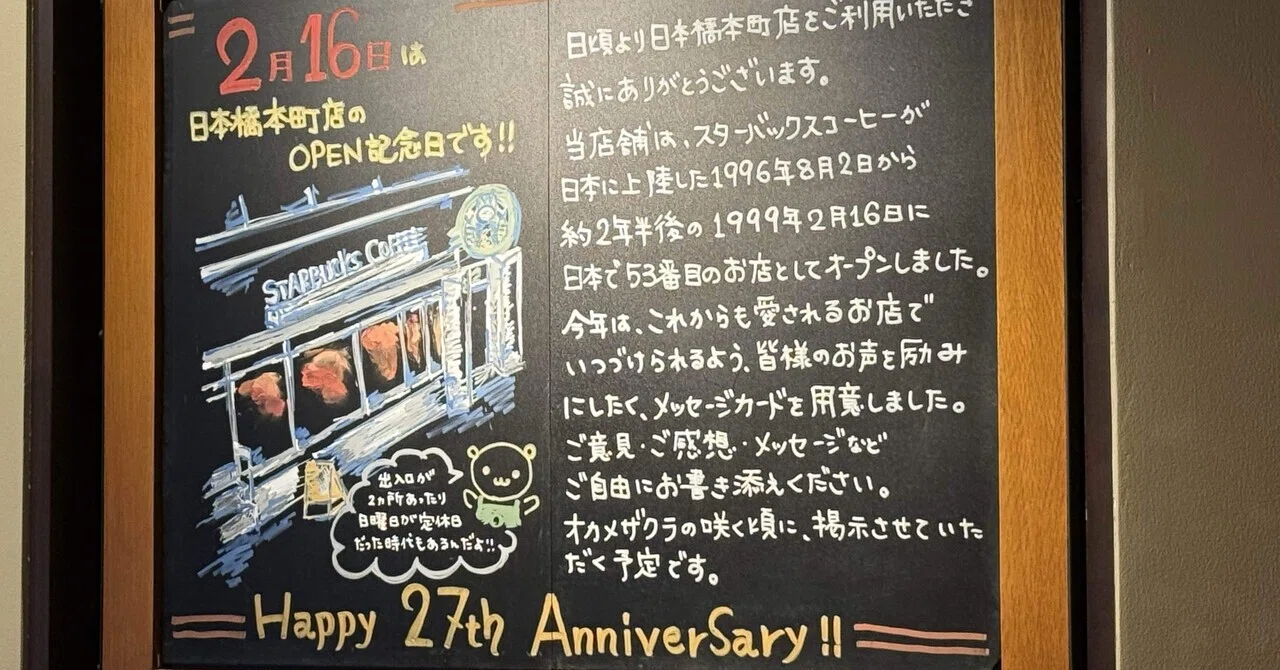 2月16日は
日本橋本町店の
OPEN記念日です!!
STARBUCKS COFFEE
出入口が
2ヵ所あったり
日曜日が定休日
だった時代もあるんだよ!!
日頃より日本橋本町店をご利用いただき
誠にありがとうございます。
当店舗は、スターバックスコーヒーが
日本に上陸した1996年8月2日から
約2年半後の1999年2月16日に
日本で53番目のお店としてオープンしました。
今年は、これからも愛されるお店で
いつづけられるよう、皆様のお声を励み
にしたく、メッセージカードを用意しました。
ご意見・ご感想・メッセージなど
ご自由にお書き添えください。
オカメザクラの咲く頃に、掲示させていた
だく予定です。
Happy 27th Anniversary!!